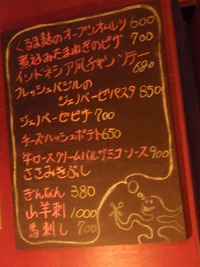 くるま麸のオープンオムレツ 600
煮込みたまねぎのピザ 700
インドネシア風チキンソテー
680
フレッシュバジルの
ジェノベーゼパスタ 850
ジェノベーゼピザ 700
チーズハッシュポテト 650
牛ロースクリームバルサミコソース 900
ささみきぶし
ぎんなん 380
山羊刺 1000
馬刺し 700